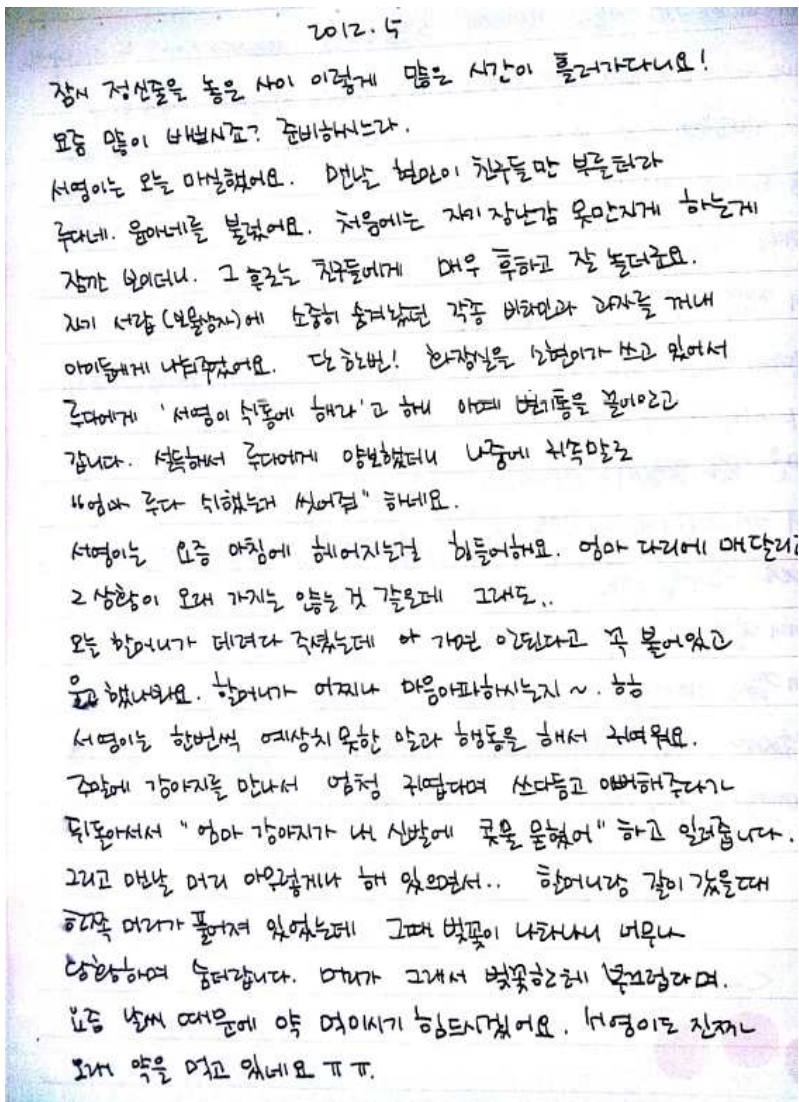 2012. 5
잠시 정신줄을 놓은 사이 이렇게 많은 시간이 흘러가다니요!
요즘 많이 바쁘시죠? 준비하시느라.
서영이는 오늘 마실했어요. 맨날 현민이 친구들만 부를려라
루다네. 윤아네를 불렀어요. 처음에는 자기 장난감 못만지게 하는게
잠깐 보이더니. 그 후로는 친구들에게 매우 후하고 잘 놀더군요.
자기 서랍(보물상자)에 소중히 숨겨놨던 각종 비타민과 과자를 꺼내
아이들에게 나눠주었어요. 단 한번! 화장실을 소현이가 쓰고 있어서
루다에게 '서영이 쉬통에 해라'고 하니 아예 변기통을 끌어안고
갑니다. 설득해서 루다에게 양보했더니 나중에 귀속말로
"엄마 루다 쉬했는거 씻어줘" 하네요.
서영이는 요즘 아침에 헤어지는걸 힘들어해요. 엄마 다리에 매달리고
그 상황이 오래 가지는 않는 것 같은데 그래도..
오늘 할머니가 데려다 주셨는데 아 가면 안된다고 꼭 붙어있고
울고 했나봐요. 할머니가 어찌나 마음아파하시는지 ~. ㅎㅎ
서영이는 한번씩 예상치 못한 말과 행동을 해서 귀여워요.
주말에 강아지를 만나서 엄청 귀엽다며 쓰다듬고 예뻐해주다가
뒤돌아서서 "엄마 강아지가 내 신발에 콧물 묻혔어" 하고 일러줍니다.
그리고 맨날 머리 아무렇게나 해 있으면서.. 할머니랑 같이 갔을때
한쪽 머리가 풀어져 있었는데 그때 벚꽃이 나타나니 너무나
당황하며 숨더랍니다. 머리가 그래서 벚꽃한테 부끄럽다며.
요즘 날씨 때문에 약 먹이시기 힘드시겠어요. 서영이도 진짜
오래 약을 먹고 있네요 ㅠㅠ.